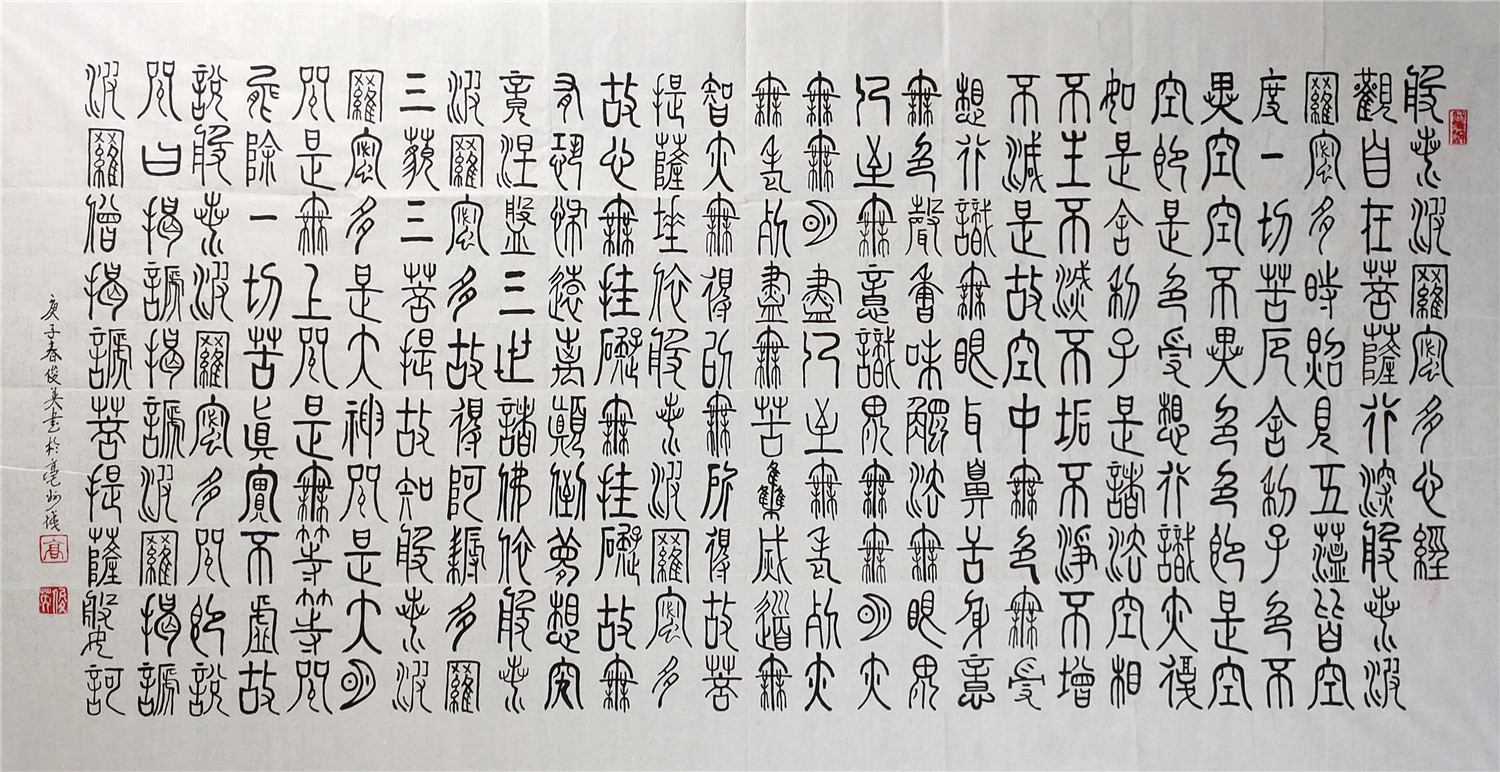 般若波羅蜜多心經
觀自在菩薩行深般若波
羅蜜多時照見五蘊皆空
度一切苦厄舍利子色不
異空空不異色色即是空
空即是色受想行識亦復
如是舍利子是諸法空相
不生不滅不垢不淨不增
不減是故空中無色無受
想行識無眼耳鼻舌身意
無色聲香味觸法無眼界
乃至無意識界無無明亦
無無明盡乃至無老死亦
無老死盡無苦集滅道無
智亦無得以無所得故菩
提薩埵依般若波羅蜜多
故心無挂礙無挂礙故無
有恐怖遠離顛倒夢想究
竟涅槃三世諸佛依般若
波羅蜜多故得阿耨多羅
三藐三菩提故知般若波
羅蜜多是大神咒是大明
咒是無上咒是無等等咒
能除一切苦真實不虛故
說般若波羅蜜多咒即說
咒曰揭諦揭諦波羅揭諦
波羅僧揭諦菩提薩婆訶
庚子春俊英書於亳州
高
俊英